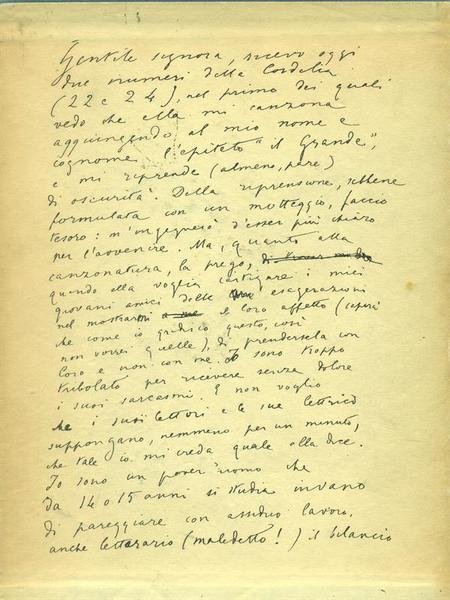 Gentile signora, ricevo oggi
due numeri della Cordelia
(22 e 24), nel primo dei quali
vedo che ella mi canzona
aggiungendo al mio nome e
cognome, l'epiteto "il Grande",
e mi riprende (almeno, pare)
di oscurità. Della riprensione, sebbene
formulata con un motteggio, faccio
tesoro: m'ingegnerò d'esser più chiaro
per l'avvenire. Ma, quanto alla
canzonatura, la prego,
quando ella voglia castigare i miei
giovani amici delle esagerazioni
nel mostrarmi il loro affetto (saprà
che come io gradisco questo, così
non vorrei quelle), di prendersela con
loro e non con me. Io sono troppo
tribolato per ricevere senza dolore
i suoi sarcasmi. E non voglio
che i suoi lettori e le sue lettrici
suppongano, nemmeno per un minuto,
che tale io mi creda quale ella dice.
Io sono un pover'uomo che
da 14 o 15 anni si studia invano
di pareggiare con assiduo lavoro,
anche letterario (maledetto!) il bilancio